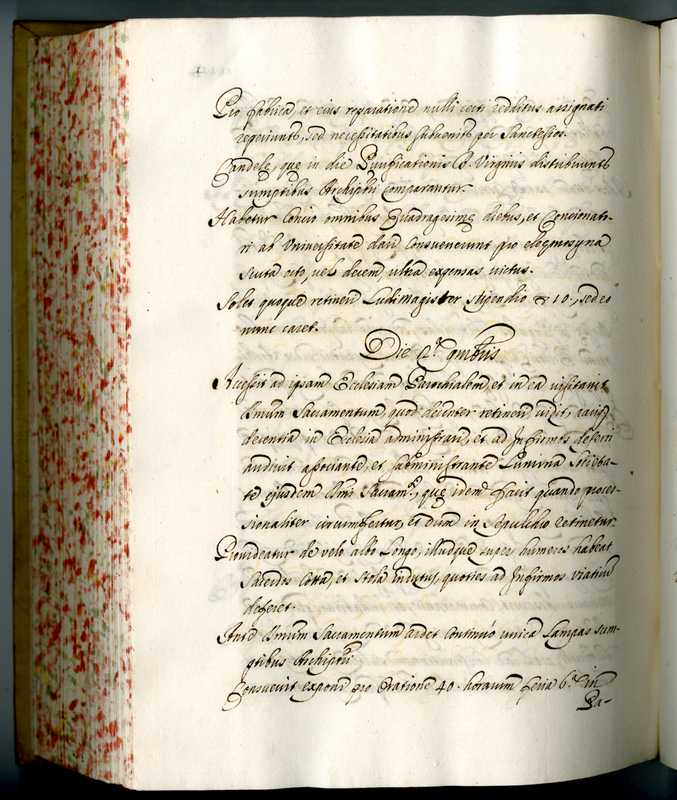 Pro fabrica, et eius reparatione nulli certi redditus assignati
reperiunt, sed necessitatibus subvenit per
Candele, que in die Purificationis B. Virginis distribuunt
sumptibus Archiptri comparantur.
Habetur Concio omnibus Quadragesime diebus, et Concionato-
ri ab Universitate dari consueverunt pro eleemosyna
scuta octo, vel decem ultra expensas victus.
Solet quoque retineri Ludimagister stipendio 10., sed eo
nunc caret.
Die 2.ª
Accessit ad ipsam Ecclesiam Parochialem, et in ea visitavit
Smum Sacramentum, quod decenter retineri vidit,
decentia in Ecclesia administrari, et ad Infirmos deferri
audivit associante, et subministrante Lumina Societa-
te eiusdem Smi Sacram.ti, que idem facit quando proces-
sionaliter circumfertur, et dum in Sepulchro retinetur.
Provideatur de velo albo longo, illudque super humeros habeat
Sacerdos Cotta, et stola indutus, quoties ad Infirmos viaticu
deferet.
Ante Smum Sacramentum ardet continuo unica Lampas sum-
ptibus Archiptri
Consuevit exponi pro Oratione 40. horarum feria 6.ª in
Pa-